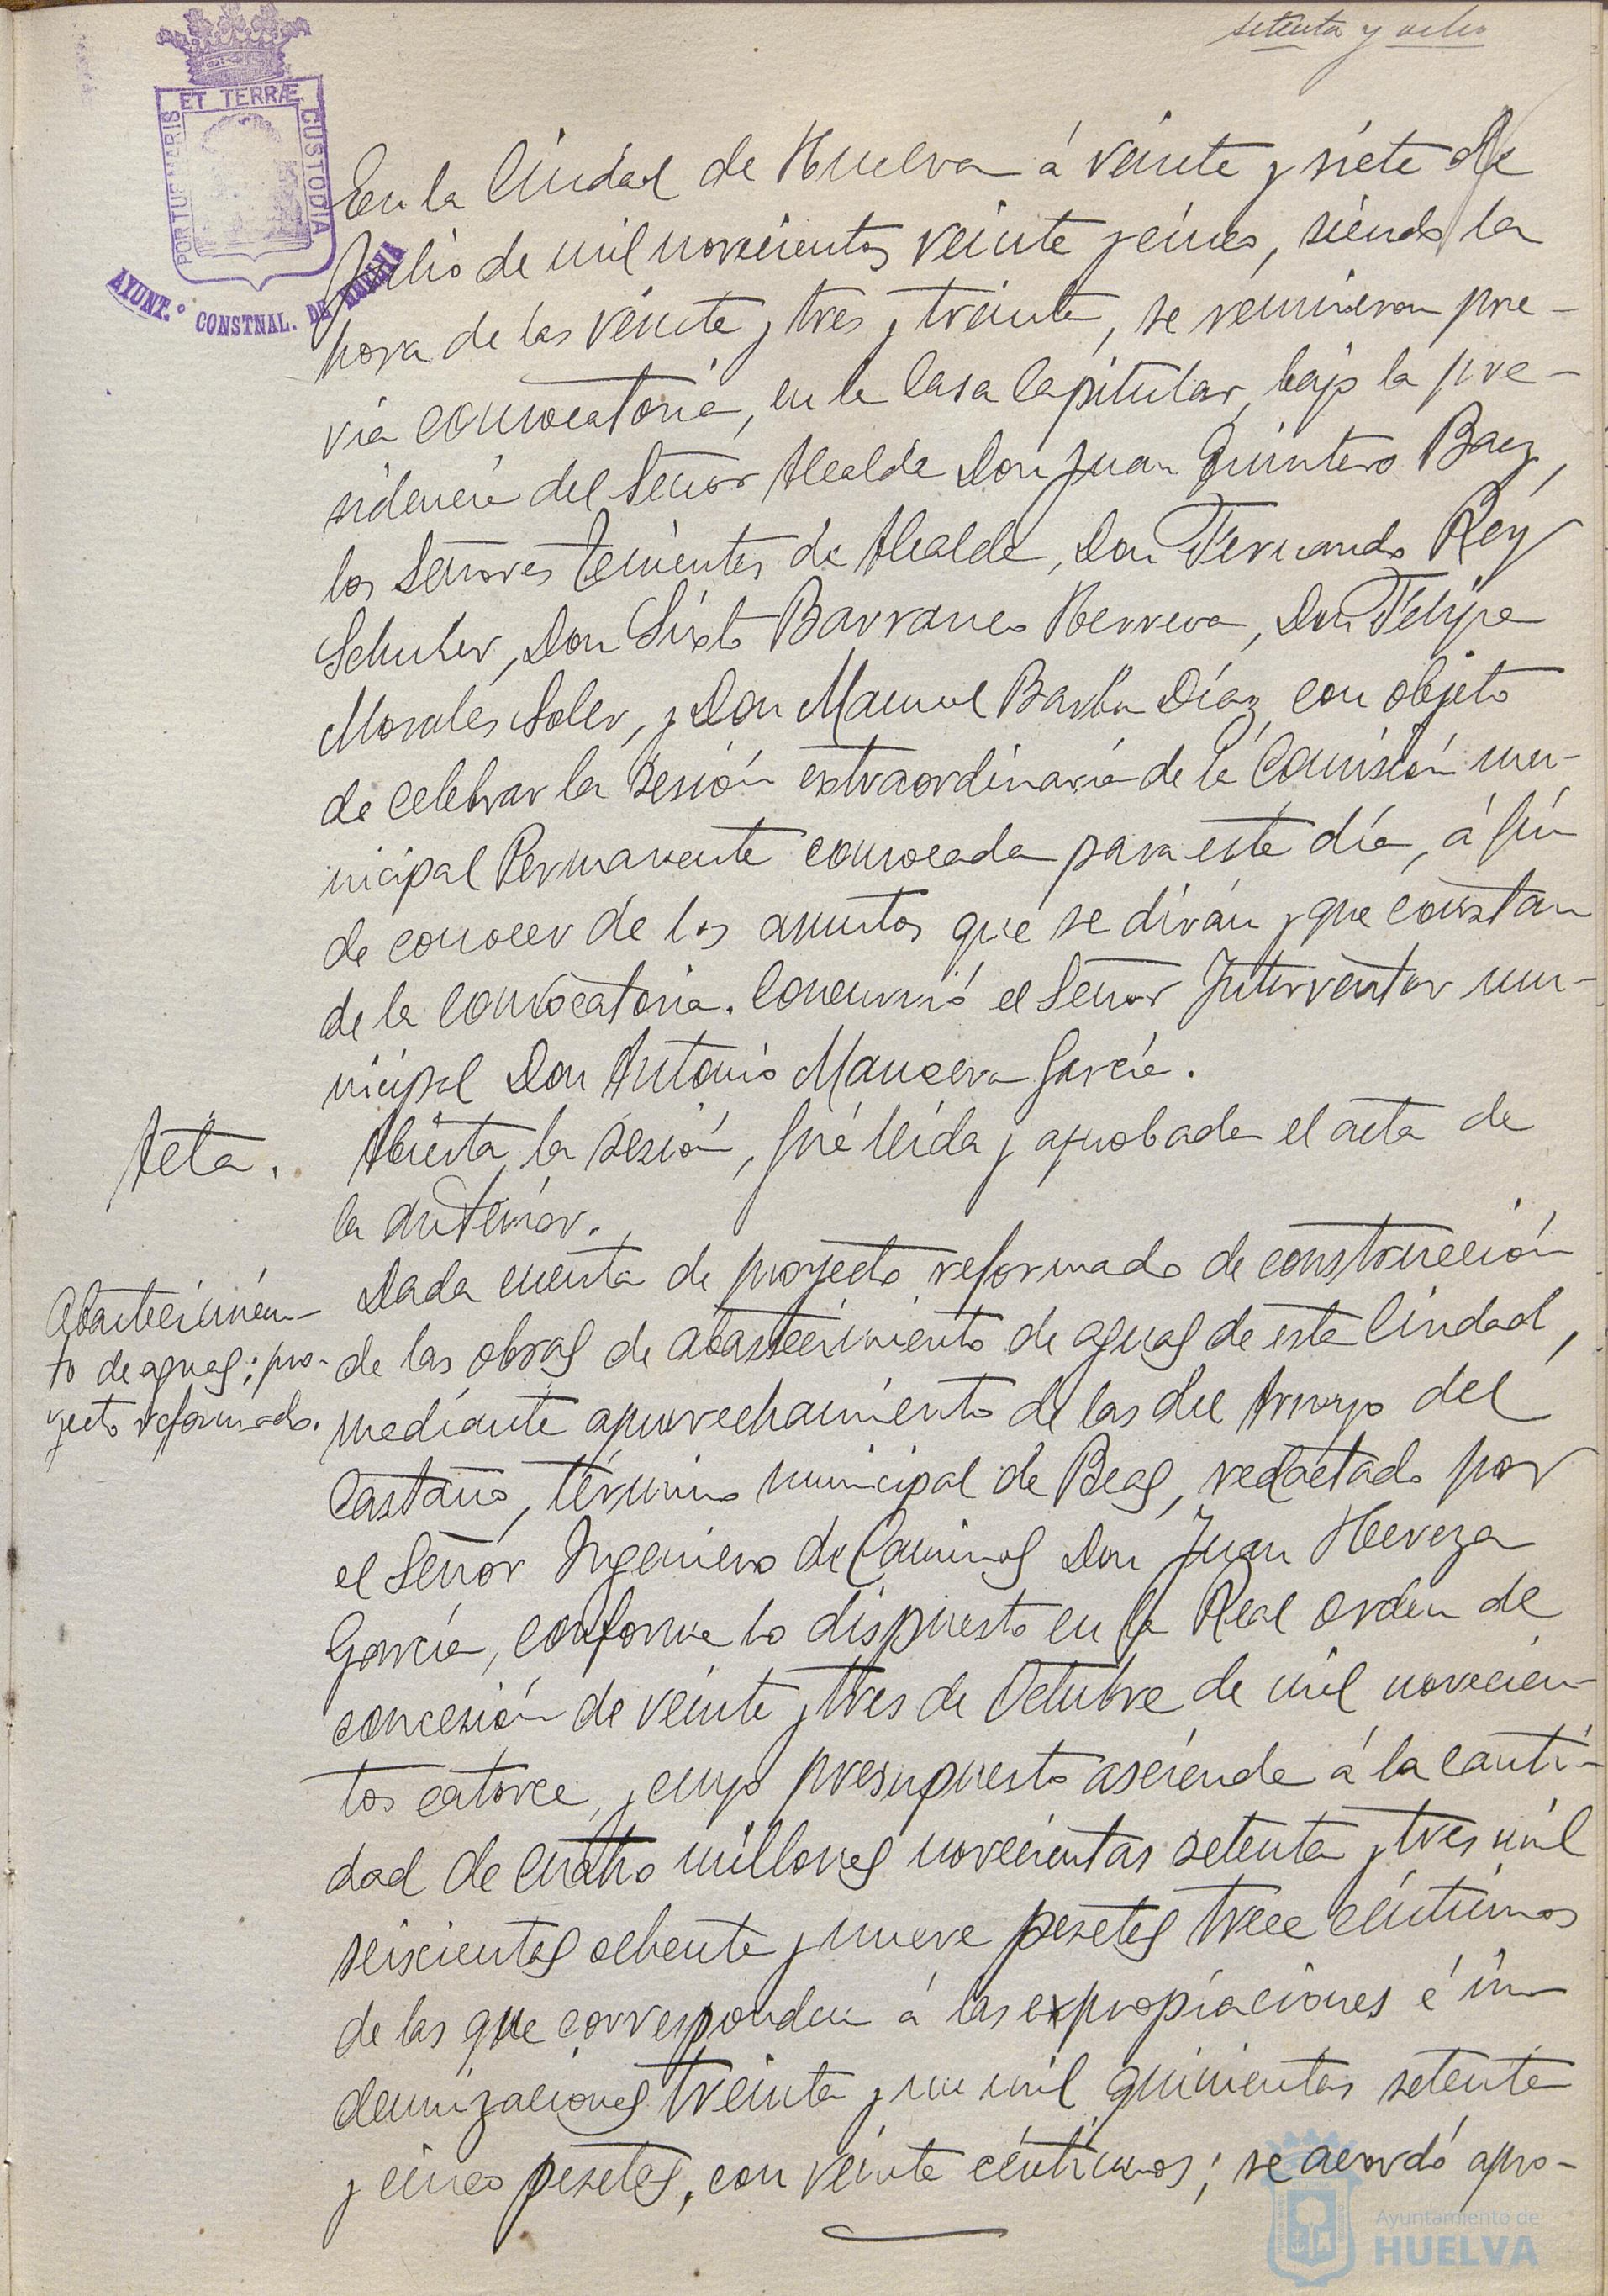 setenta y ocho
ET TERRÆ
PORTUS MARIS
CUSTODIA
AYUNT.º CONSTNAL. DE HUELVA
En la Ciudad de Huelva á veinte y siete de
Julio de mil novecientos veinte y cinco, siendo la
hora de las veinte y tres y treinta, se reunieron pre-
via convocatoria, en la Casa Capitular, bajo la pre-
sidencia del Señor Alcalde Don Juan Quintero Baez,
los Señores Tenientes de Alcalde, Don Fernando Rey
Schuher, Don Sixto Barranco Herrera, Don Felipe
Morales Soler, y Don Manuel Barba Díaz, con objeto
de celebrar la sesión extraordinaria de la Comisión mu-
nicipal Permanente convocada para este día, á fin
de conocer de los asuntos que se dirán y que constan
de la convocatoria. Concurrió el Señor Interventor mu-
nicipal Don Antonio Mancera García.
Acta.
Abierta la sesión, fué leída y aprobada el acta de
la anterior.
Abastecimien-
to de aguas; pro-
yecto reformado.
Dada cuenta de proyecto reformado de construcción
de las obras de abastecimiento de aguas de esta Ciudad,
mediante aprovechamiento de las del Arroyo del
Castaño, término municipal de Beas, redactado por
el Señor Ingeniero de Caminos Don Juan Hereza
García, conforme lo dispuesto en la Real orden de
concesión de veinte y tres de Octubre de mil novecien-
tos catorce, y cuyo presupuesto asciende á la canti-
dad de cuatro millones novecientas setenta y tres mil
seiscientas ochenta y nueve pesetas trece céntimos
de las que corresponden á las expropiaciones é in-
demnizaciones treinta y un mil quinientas setenta
y cinco pesetas, con veinte céntimos; se acordó apro-
Ayuntamiento de
HUELVA